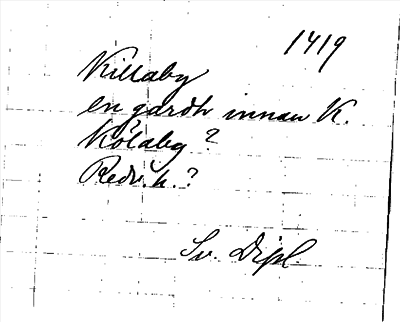 1419
Killaby
en gardh innan K.
Kölaby?
Redv. h.?
Sv. Dipl.